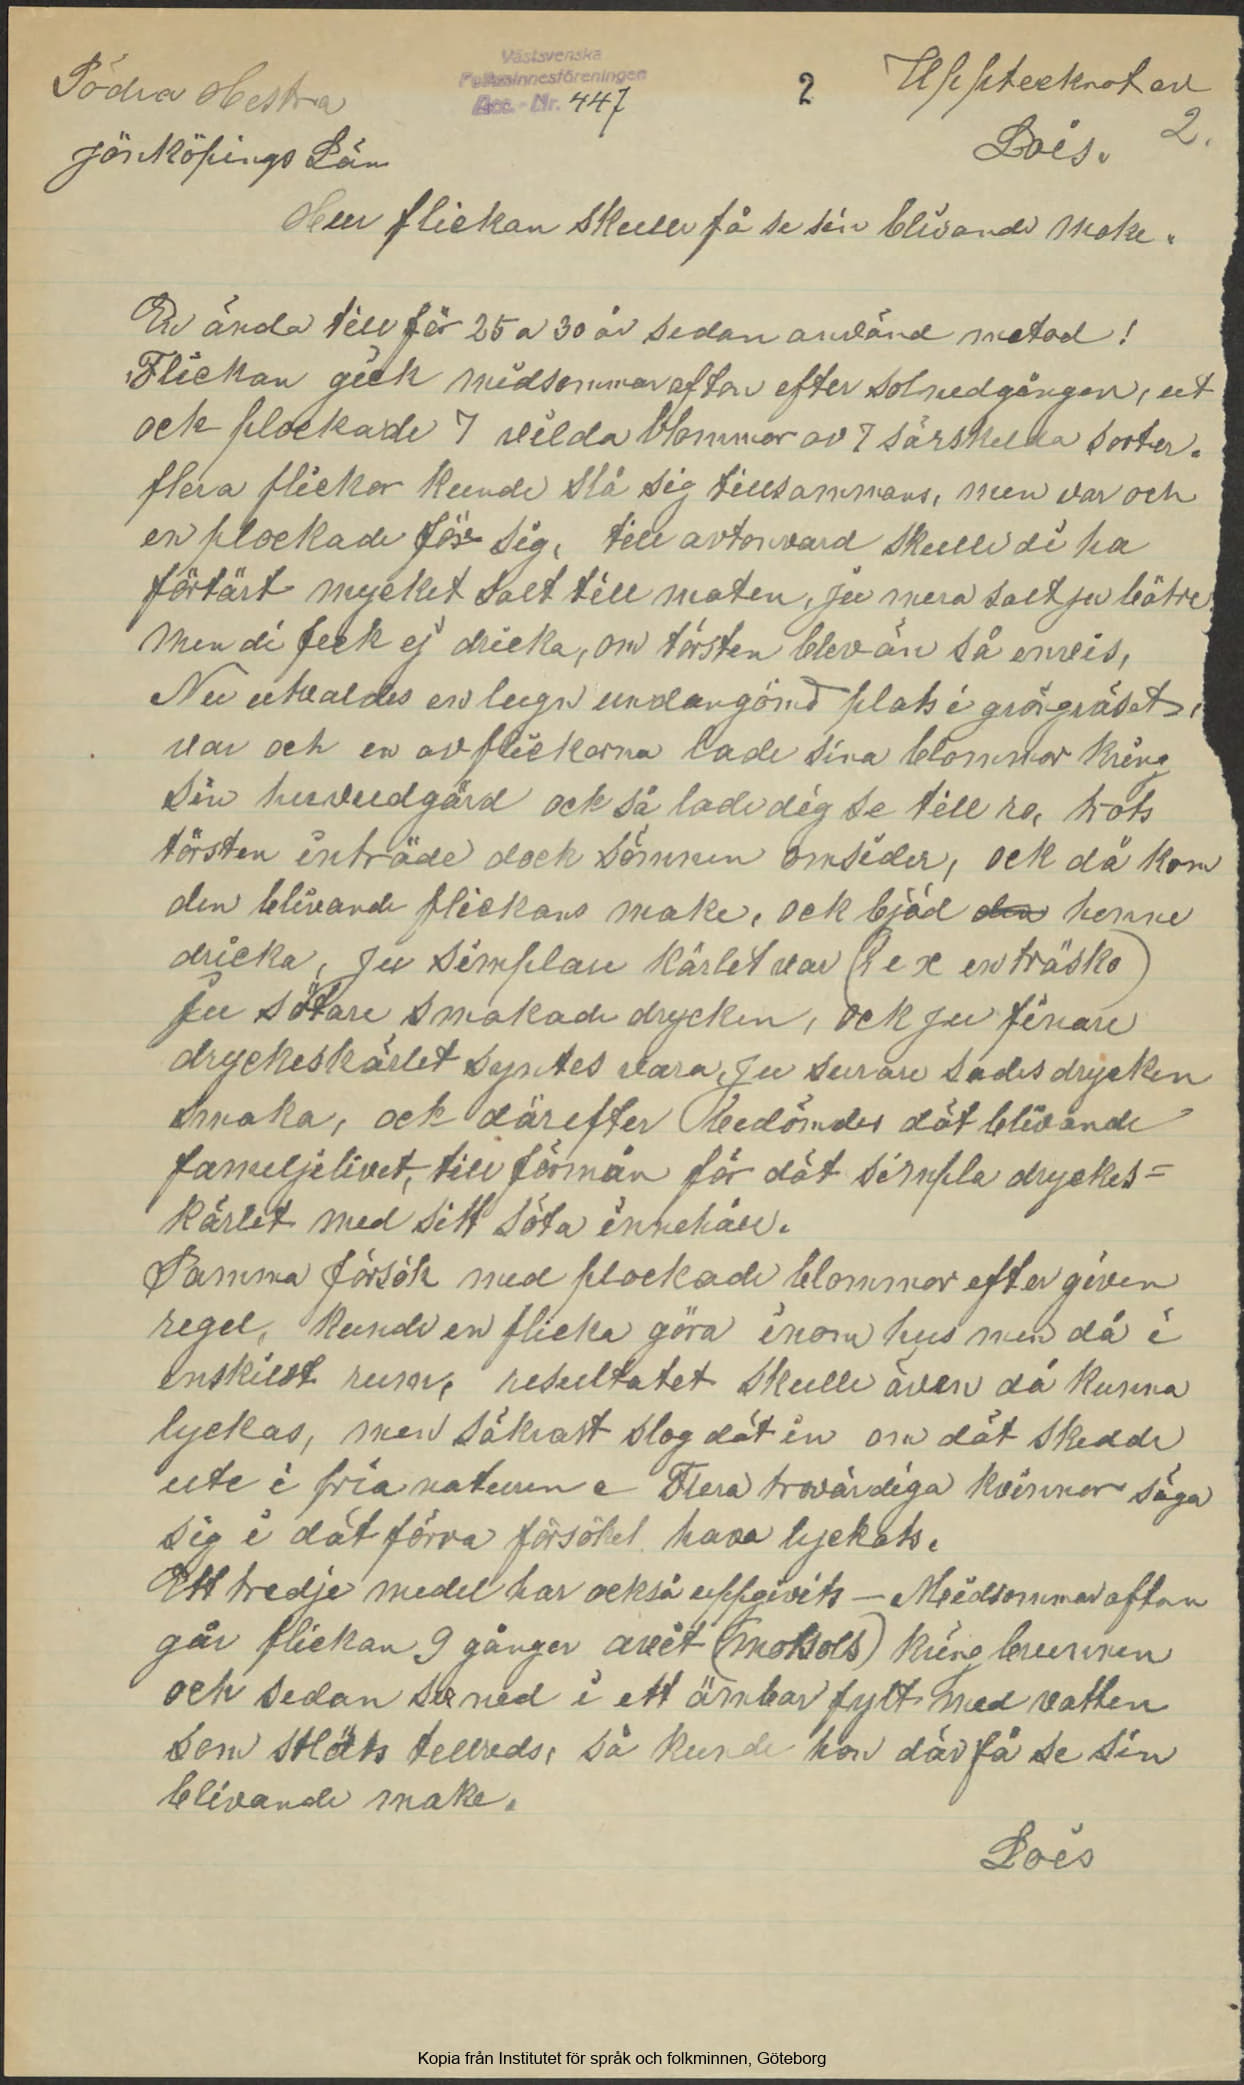 Södra Hestra
Jönköpings Län
Västsvenska
Folkminnesföreningen
Acc.-Nr. 447
2
Upptecknat av
Lois.
2.
Hur flickan skulle få se sin blivande make.
En ända till för 25 a 30 år sedan använd metod!
Flickan gick midsommarafton efter solnedgången, ut
ock plockade 7 vilda blommor av 7 särskilda sorter.
flera flickor kunde slå sig tillsammans, men var och
en plockade för sig, till avtonvard skulle di ha
förtärt mycket salt till maten, ju mera salt ju bätre
men di feck ej dricka, om törsten blev än så envis,
Nu utvaldes en lugn undangömd plats i gröngräset,
var och en av flickorna lade sina blommor kring
sin huvudgärd ock så lade dig se till ro, trots
törsten inträde dock sömnen omsider, ock då kom
den blivande flickans make, ock bjöd den henne
dricka, ju simplare kärlet var (t e x en träsko)
ju sötare smakade drycken, ock ju finare
dryckeskärlet syntes vara, ju surare sades drycken
smaka, ock därefter bedömdes dät blivande
fameljelivet, till förmån för dät simpla dryckes=
kärlet med sitt söta innehåll.
Samma försök med plockade blommor efter given
regel, kunde en flicka göra inom hus men då i
enskilt rum, resultatet skulle även då kunna
lyckas, men säkrast slog dät in om dät skedde
ute i fria naturen. Flera trovärdiga kvinnor säga
sig i dät förra försöket hava lyckats.
Ett tredje medel har också uppgivits – Midsommarafton
går flickan 9 gånger avet (motsols) kring brunnen
och sedan se ned i ett ämbar fylt med vatten
som stläts tellreds, så kunde hon där få se sin
blivande make.
Lois
Kopia från Institutet för språk och folkminnen, Göteborg